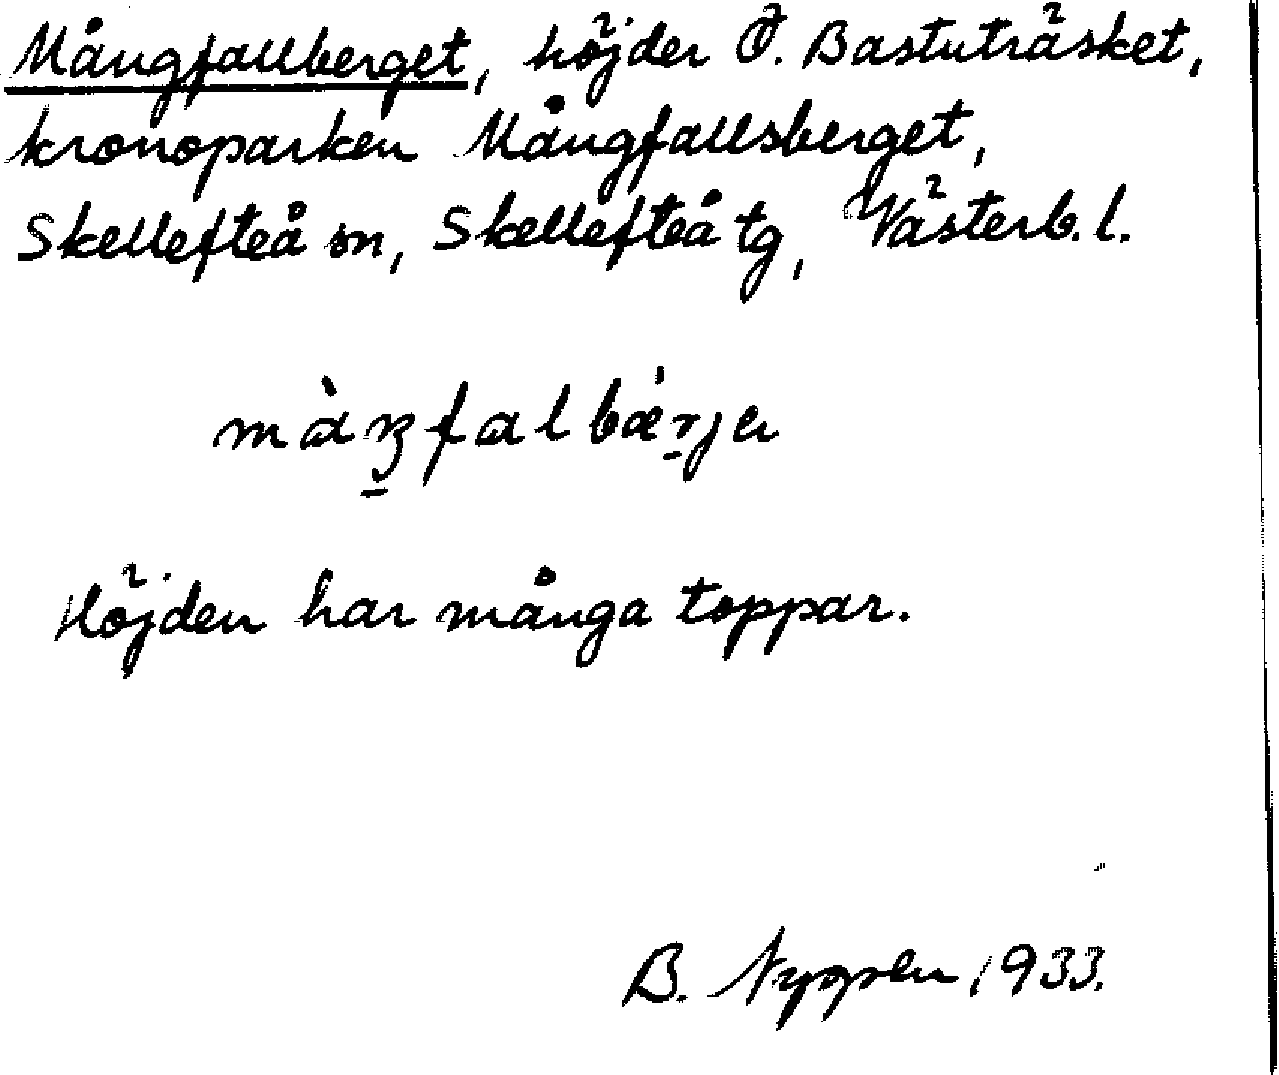 Mångfallberget, höjder Ö. Bastuträsket,
kronoparken Mångfallsberget,
Skellefteå sn, Skellefteå tg, Västerb. l.
Höjden har många toppar.
B. Nygren 1933.